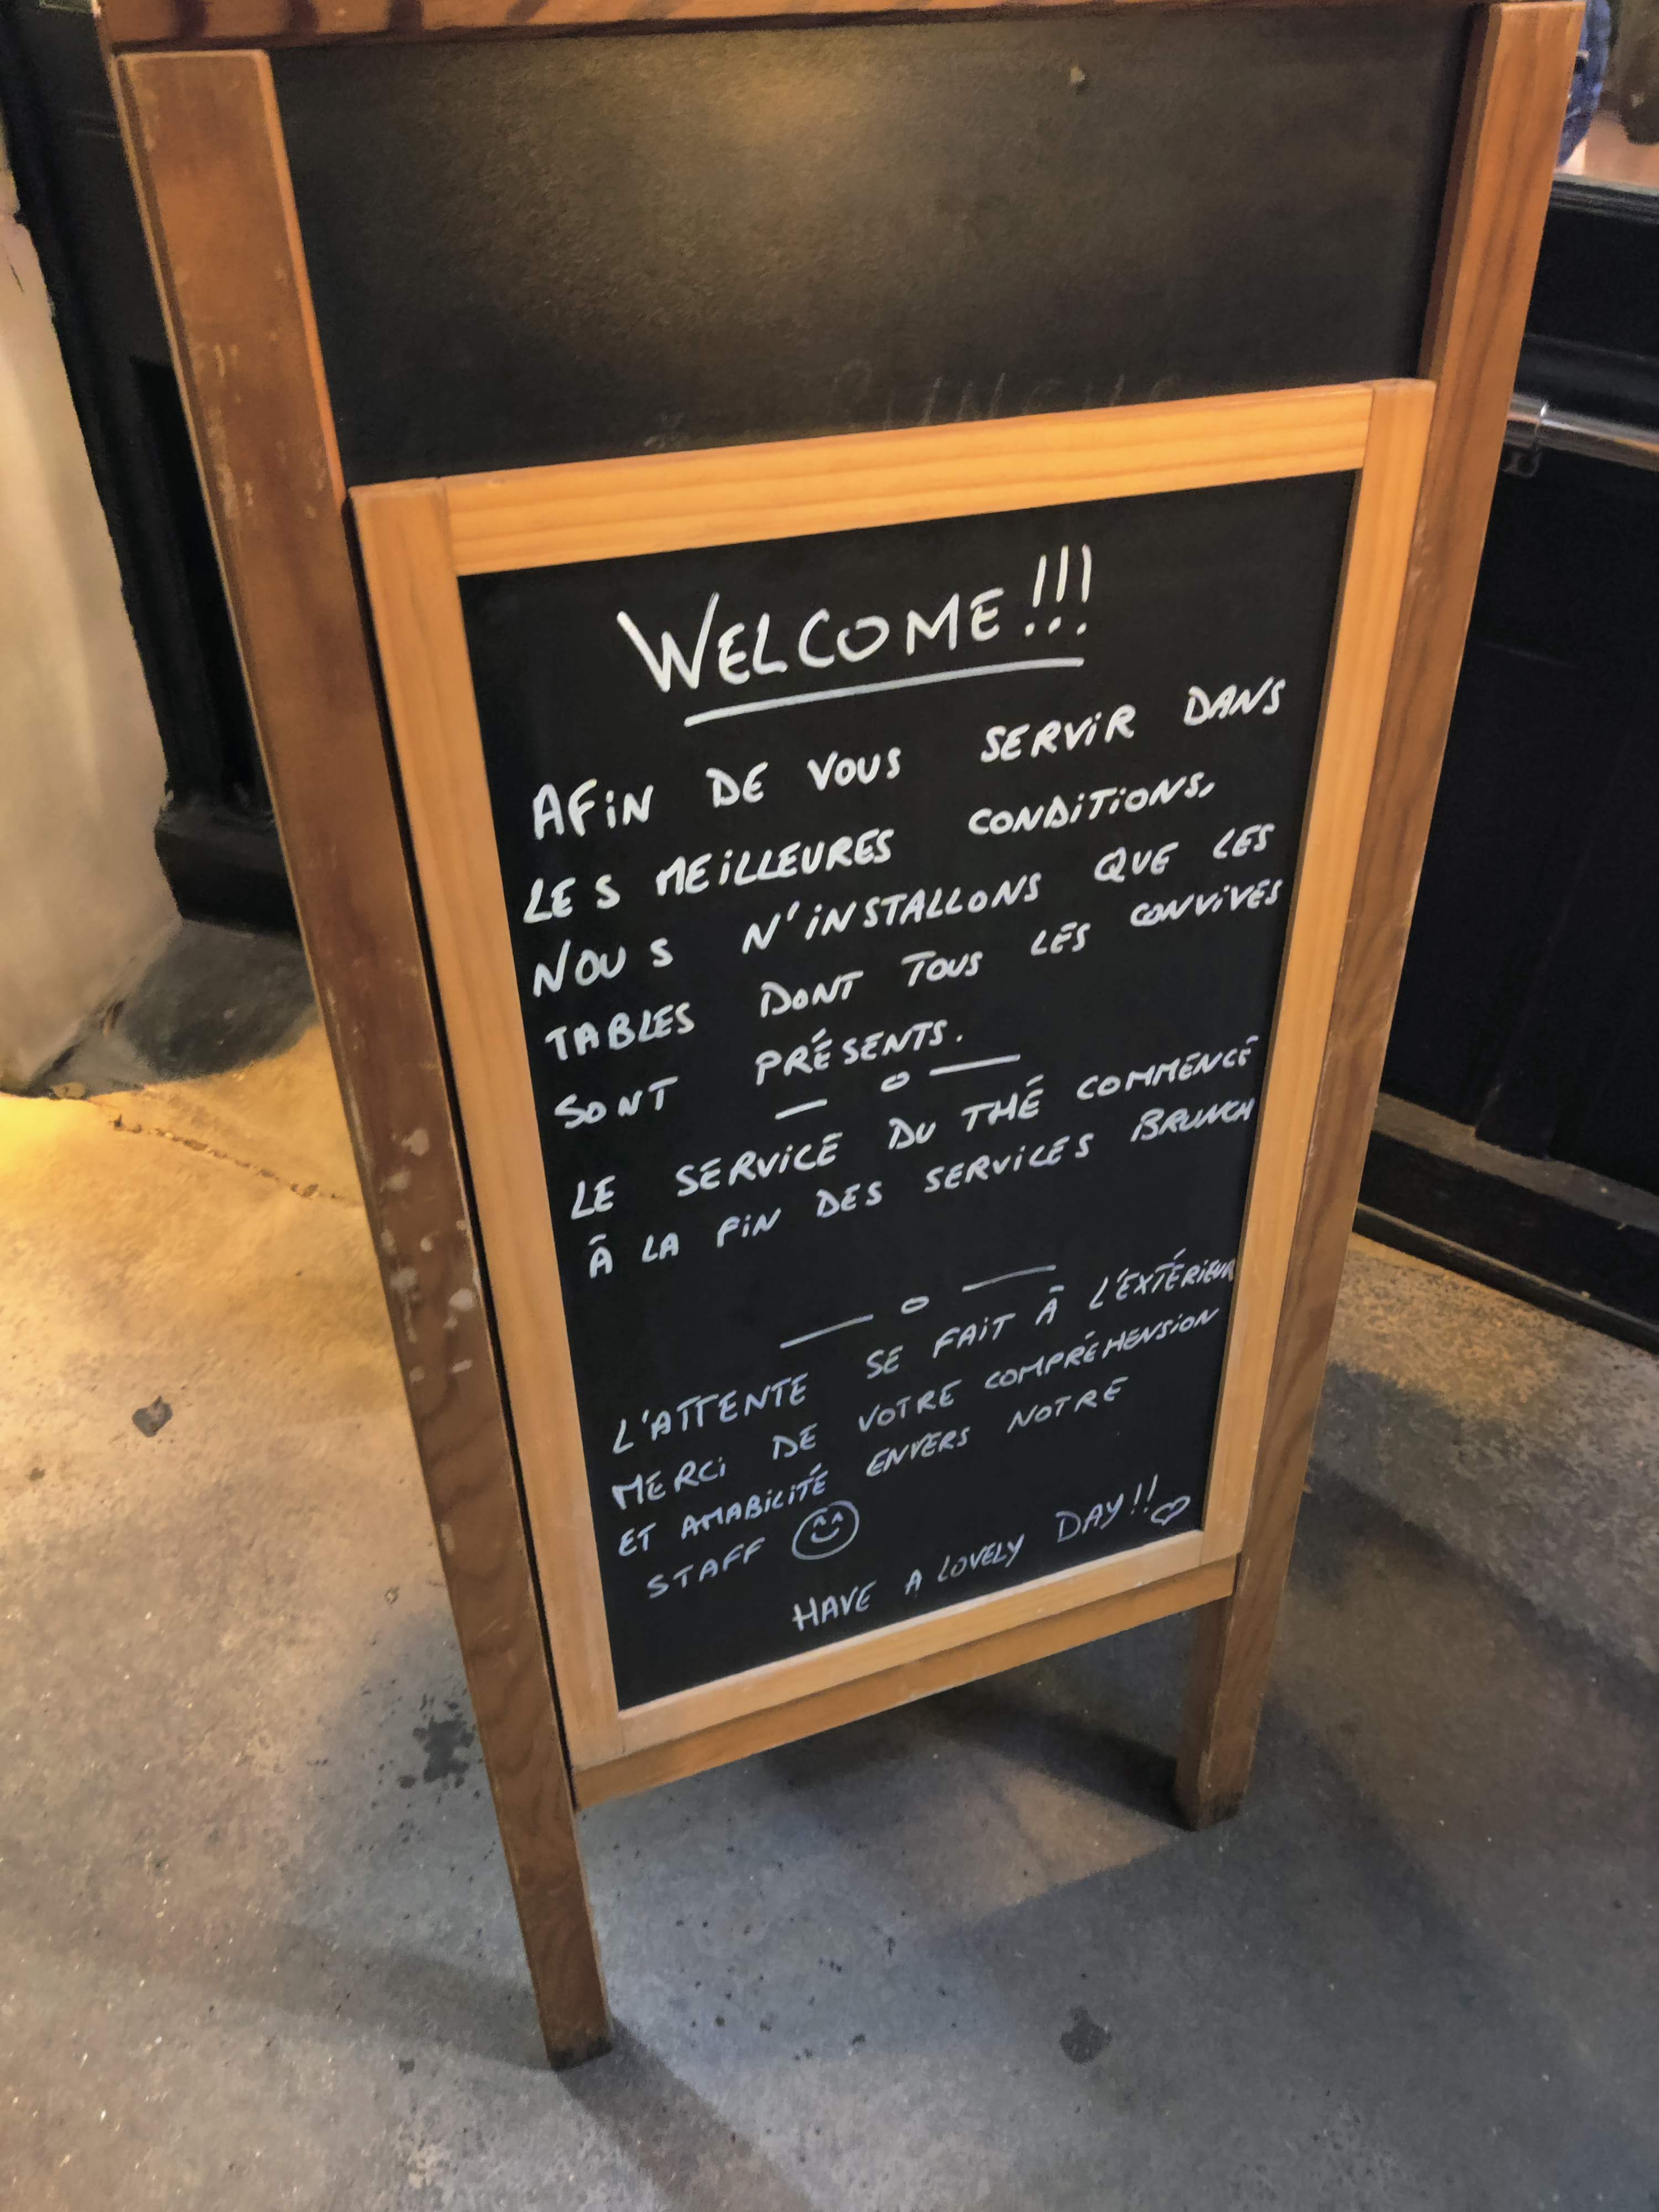 WELCOME!!!
AFIN DE VOUS SERVIR DANS
LES MEILLEURES CONDITIONS,
NOUS N'INSTALLONS QUE LES
TABLES DONT TOUS LES CONVIVES
SONT PRÉSENTS.
— o —
LE SERVICE DU THÉ COMMENCE
À LA FIN DES SERVICES BRUNCH
— o —
L'ATTENTE SE FAIT À L'EXTÉRIEUR
MERCI DE VOTRE COMPRÉHENSION
ET AMABILITÉ ENVERS NOTRE
STAFF
HAVE A LOVELY DAY!!